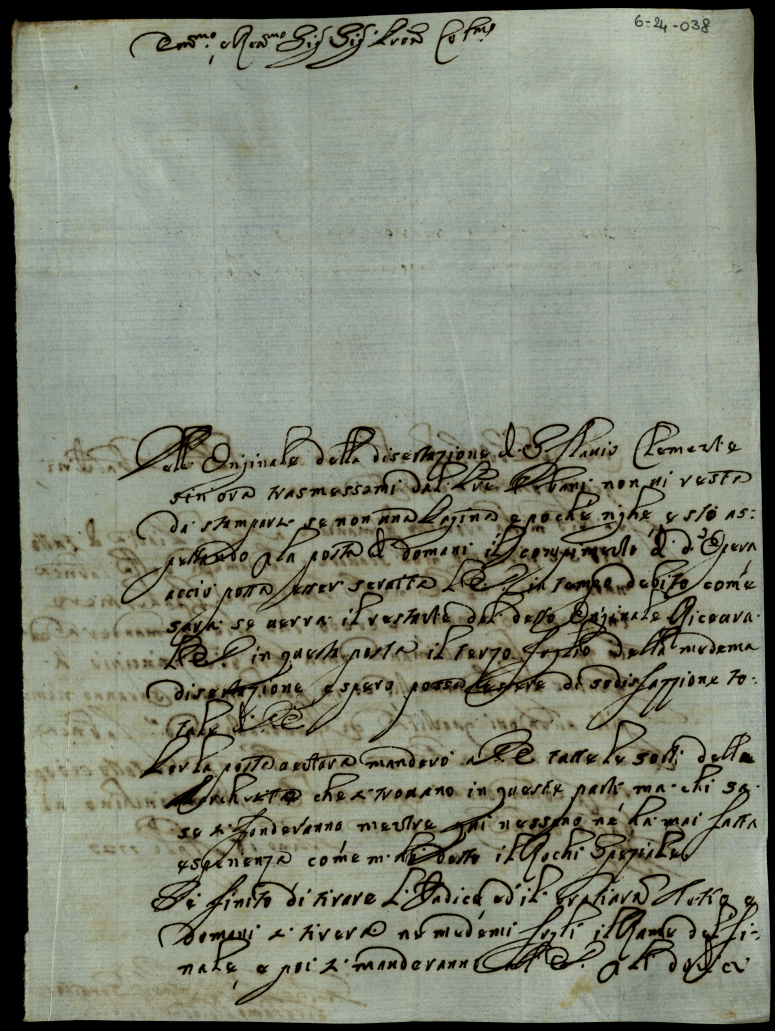 6-24-038
Em.mo e Rev.mo Sig. Sig. Pron. Col.mo
Dell' Originale della disertazione di S. Flavio Clemente
sin ora trasmessami dal non vi resta
da stampare se non una Pagina e poche righe e stò as=
pettando p la posta di domani il compimento di d.a Opera
acciò possa esser servita V.E. in tempo debito come
sarà se verrà il restante del detto Originale Riceverà
V.E. in questa posta il terzo foglio della medema
disertazione e spero possa essere di sodisfazzione to=
tale di V.E.
Per la posta ventura manderò a V.E. tutte le sorti della
che si trovano in queste parti ma chi sa
se si fonderanno mentre qui nessuno ne ha mai fatta
esperienza come m' hà detto il Rochi Speziale
Si è finito di tirare l' Indice ed il e
domani si tirerà ne medemi fogli il Rame del fi=
nale, e poi si manderanno all' E.V. p li